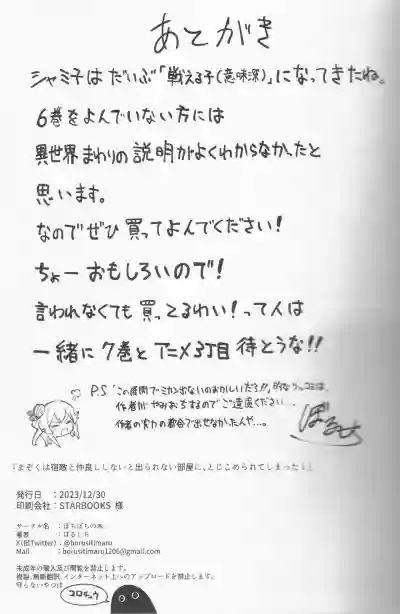 あとがき
シャミ子はだいぶ「戦える子(意味深)」になってきたね。
6巻をよんでいない方には
異世界まわりの説明がよくわからなかったと
思います。
なのでぜひ買ってよんでください!
ちょーおもしろいので!
言われなくても買ってるわい!って人は
一緒に7巻とアニメ3丁目待とうな!!
P.S「この展開でミカン出ないのおかしいだろ!!」的なツッコミは、
作者がやみおちするのでご遠慮ください…
作者の実力の都合で出せなかったんや…。
ぼるしち
『まぞくは宿敵と仲良ししないと出られない部屋に、とじこめられてしまった!』
発行日 : 2023/12/30
印刷会社 : STARBOOKS 様
サークル名 : ぼちぼちの木
著者 : ぼるしち
X(旧Twitter) : @borusitimaru
Mail : borusitimaru1206@gmail.com
未成年の購入及び閲覧を禁止します。
複製、無断翻訳、インターネット上へのアップロードを禁止します。
守らないやつは
コロすゥ